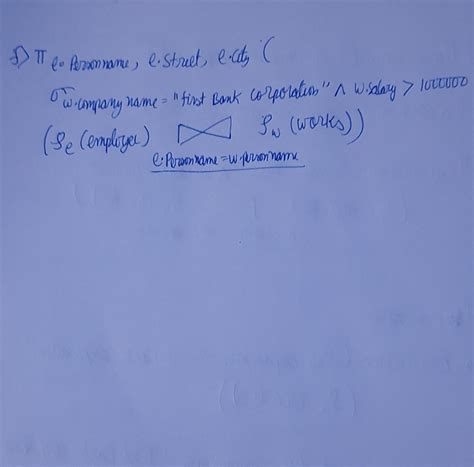 f) π e.Personname, e.Street, e.City (
σ w.company name = "first Bank corporation" ∧ w.salary > 1000000
(ρe (employee) ⋈ ρw (works))
e.Personname = w.personname